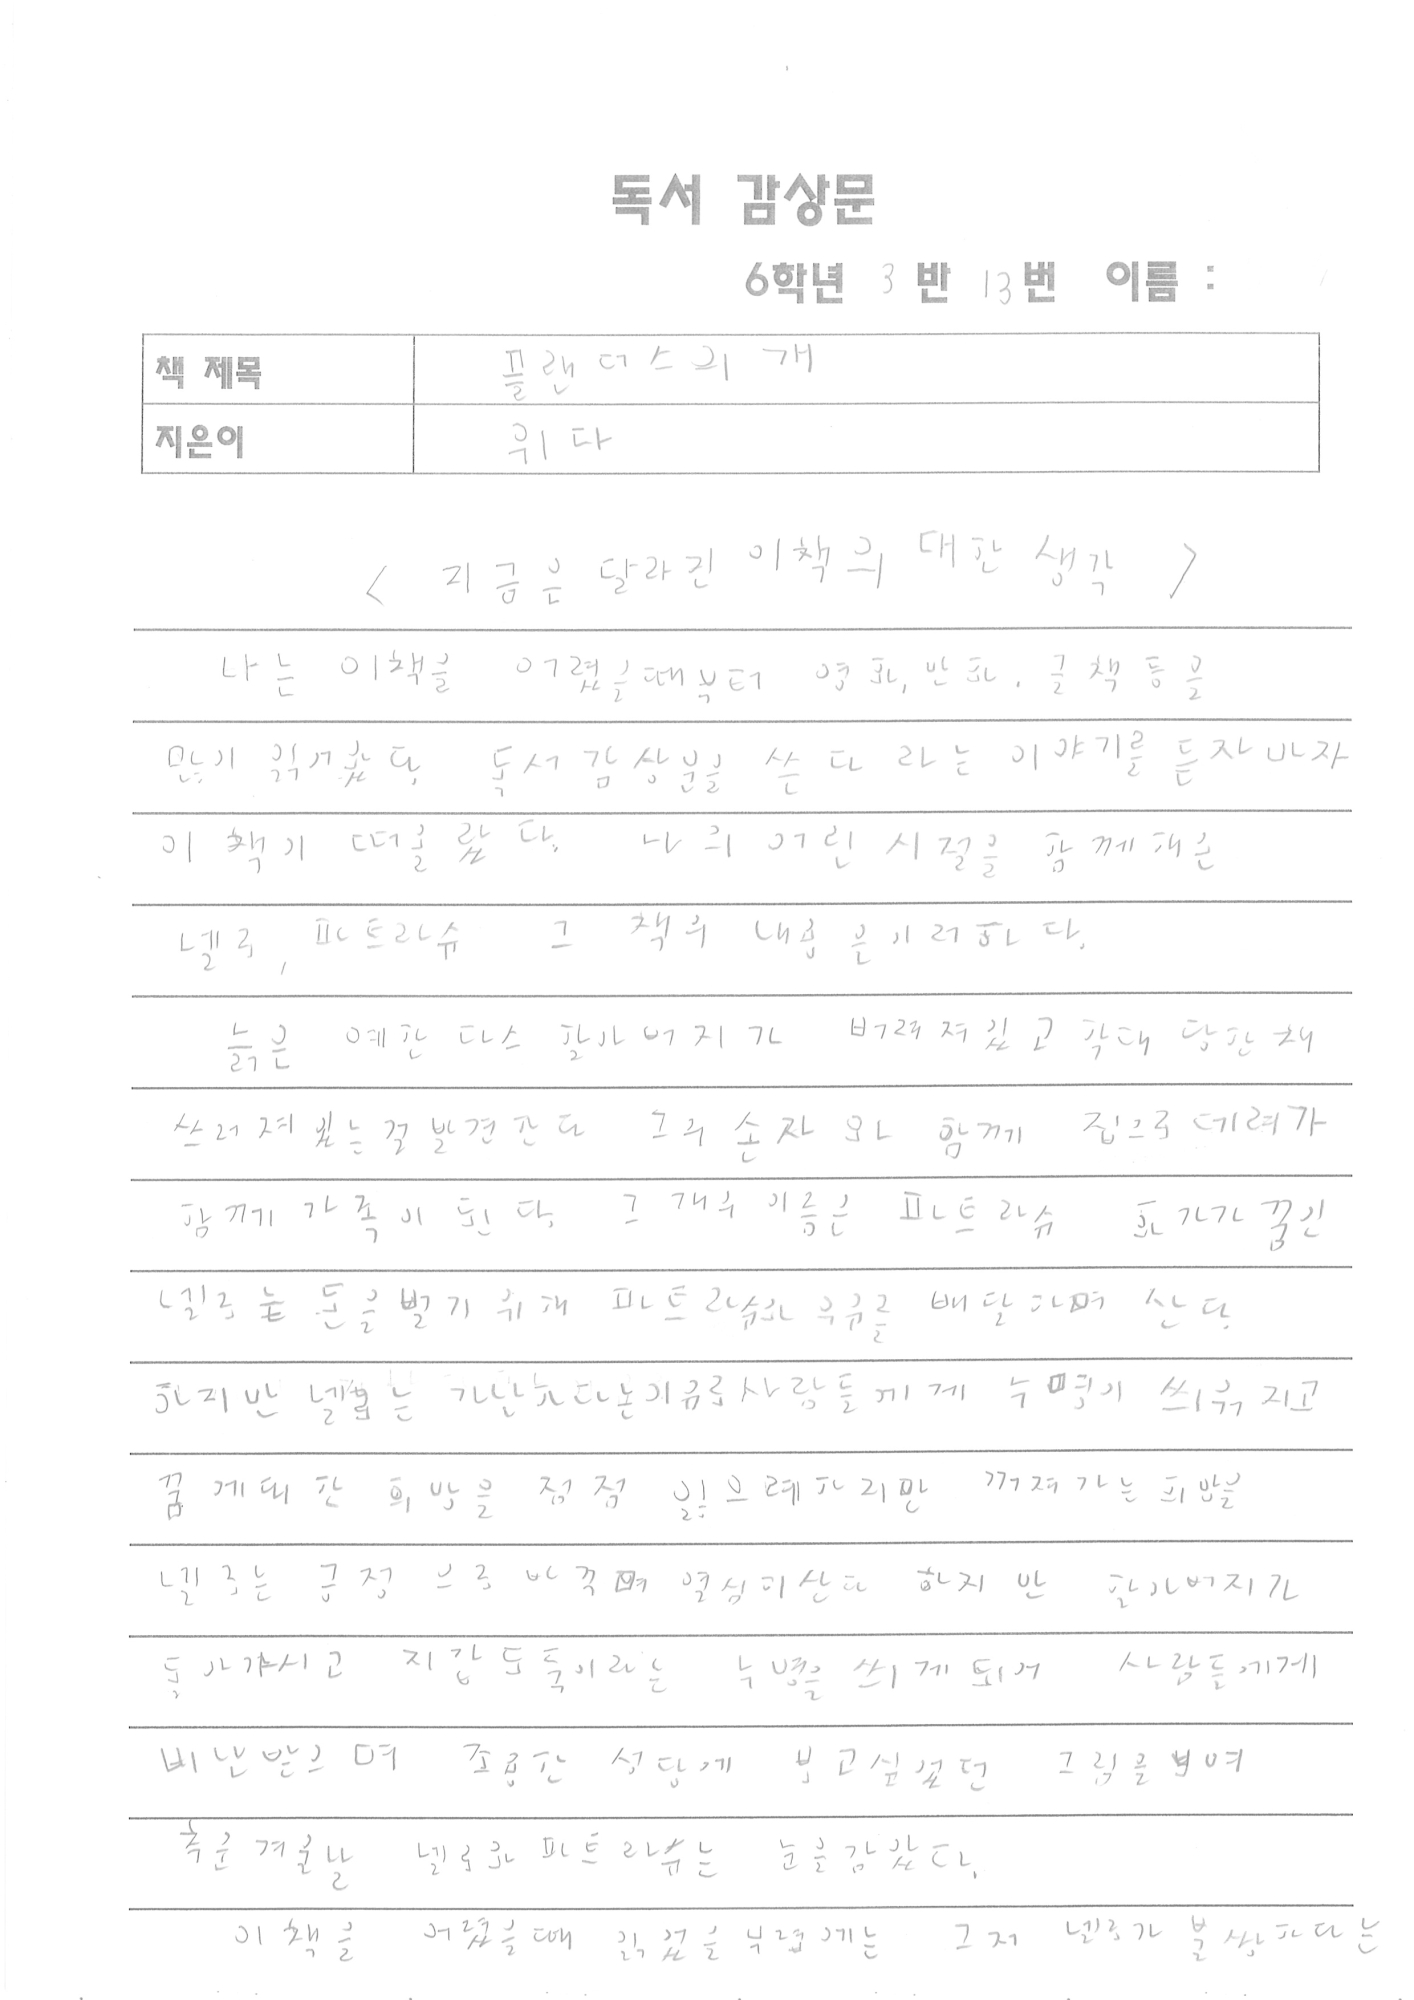 독서 감상문
6학년 3 반 13번 이름 :
책 제목 플랜더스의 개
지은이 위다
< 지금은 달라진 이책의 대한 생각 >
나는 이책을 어렸을때부터 영화, 만화, 글책 등을
많이 읽어왔다. 독서감상문을 쓴다 라는 이야기를 듣자마자
이 책이 떠올랐다. 나의 어린시절을 함께해준
넬로, 파트라슈 그 책의 내용은 이러하다.
늙은 예한 다스 할아버지가 버려져있고 학대 당한채
쓰러져있는걸 발견한다 그의 손자와 함께 집으로 데려가
함께 가족이 된다. 그 개의 이름은 파트라슈 화가가 꿈인
넬로는 돈을 벌기 위해 파트라슈와 우유를 배달하며 산다.
하지만 넬로는 가난하다는이유로사람들에게 누명이 씌워지고
꿈에대한 희망을 점점 잃으례하지만 꺼져가는 희망을
넬로는 긍정으로 바꾸며 열심히산다 하지만 할아버지가
돌아가시고 지갑도둑이라는 누명을 씌게되어 사람들에게
비난받으며 조용한 성당에 보고싶었던 그림을보며
추운겨울날 넬로와 파트라슈는 눈을감았다.
이책을 어렸을때 읽었을무렵에는 그저 넬로가 불쌍하다는